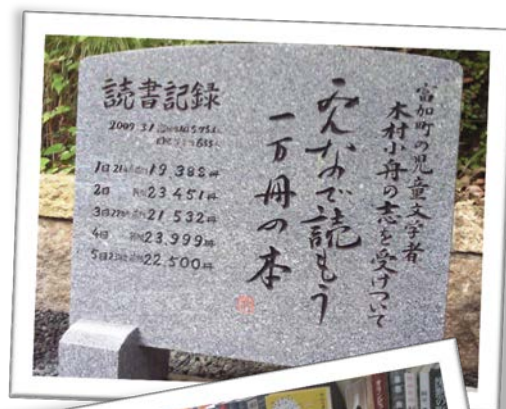 富加町の児童文学者
木村小舟の志を受けついで
みんなで読もう
一万冊の本
読書記録
2009.3.1
1回 19.388冊
2回 23.451冊
3回 21.532冊
4回 23.999冊
5回 22.500冊